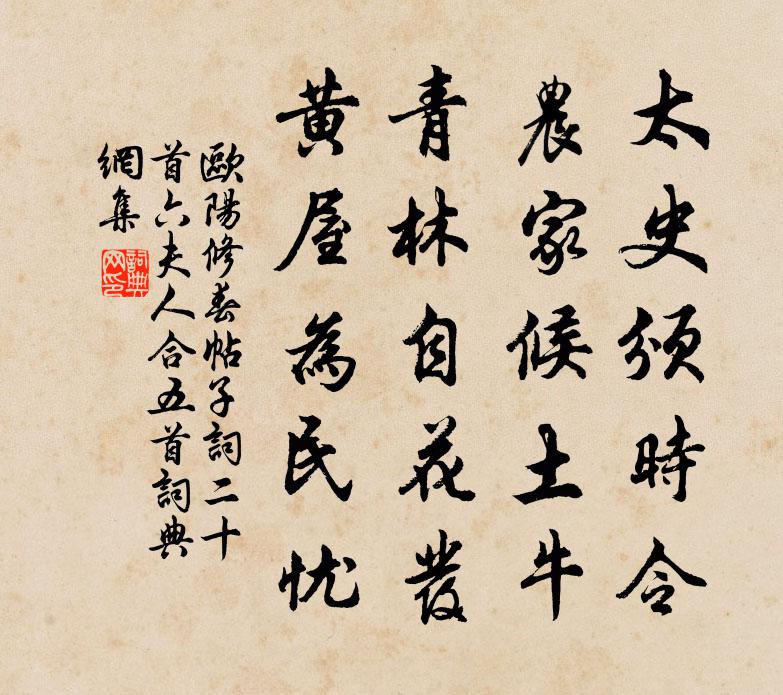 太史頒時令
農家候土牛
青林自花發
黃屋為民忧
歐陽修春帖子詞二十
首六夫人合五首詞典
網集
詞典
网印